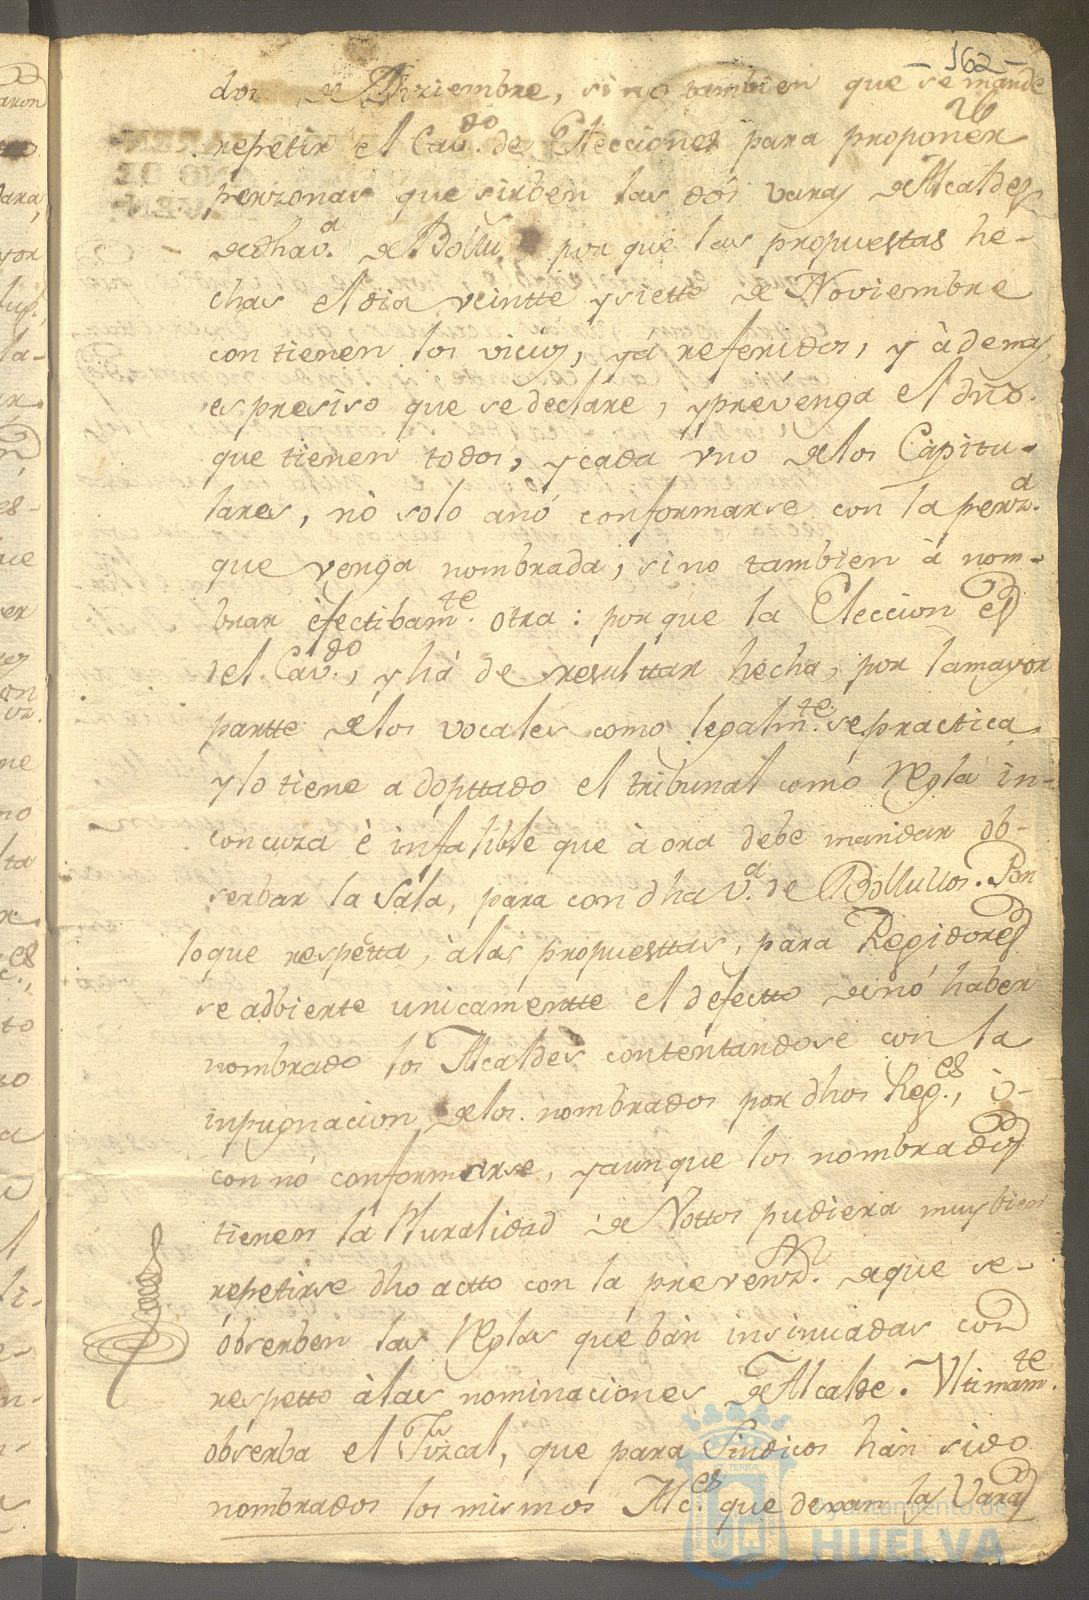 - 162 -
dos de Diziembre, sino tambien que se mande
repetir el Cav.do de Elecciones para proponer
perzonas que sirben las dos varas de Alcaldes
de dha v.a de Bollu por que las propuestas he-
chas el dia veintte y siette de Noviembre
contienen los vicios, ya referidos, y àdemas,
es presiso que se declare, y prevenga el dño.
que tienen todos, y cada vno de los Capitu-
lares, nò solo anó conformarse con la perz.a
que venga nombrada, sino tambien à nom-
brar èfectibam.te otra: porque la Eleccion es
del Cav.do, y hà de resulttar hecha, por lamayor
partte de los vocales como legalm.te se practica
y lo tiene adopttado el tribunal como regla in-
concuza è infalible que à ora debe mandar ob-
serbar la Sala, para con dha v.a de Bollullos. Por
loque respetta, àlas propuesttas, para Regidores
se adbierte unicamentte el defectto de nó haber
nombrado los Alcaldes contentandose con la
inpugnacion de los nombrados por dhos Reg.es, ò-
con nó conformarse, y aunque los nombrados
tienen la Pluralidad de Vottos pudiera muy bien
repetirse dho actto con la prevenz.n de que se-
obserben las reglas que bàn insinuadas con
respetto àlas nominaciones de Alcalde. Vltimam.te
obserba el Fizcal, que para Sindicos hàn sido
nombrados los mismos Alc.es que dexan las Varas
Ayuntamiento de
HUELVA